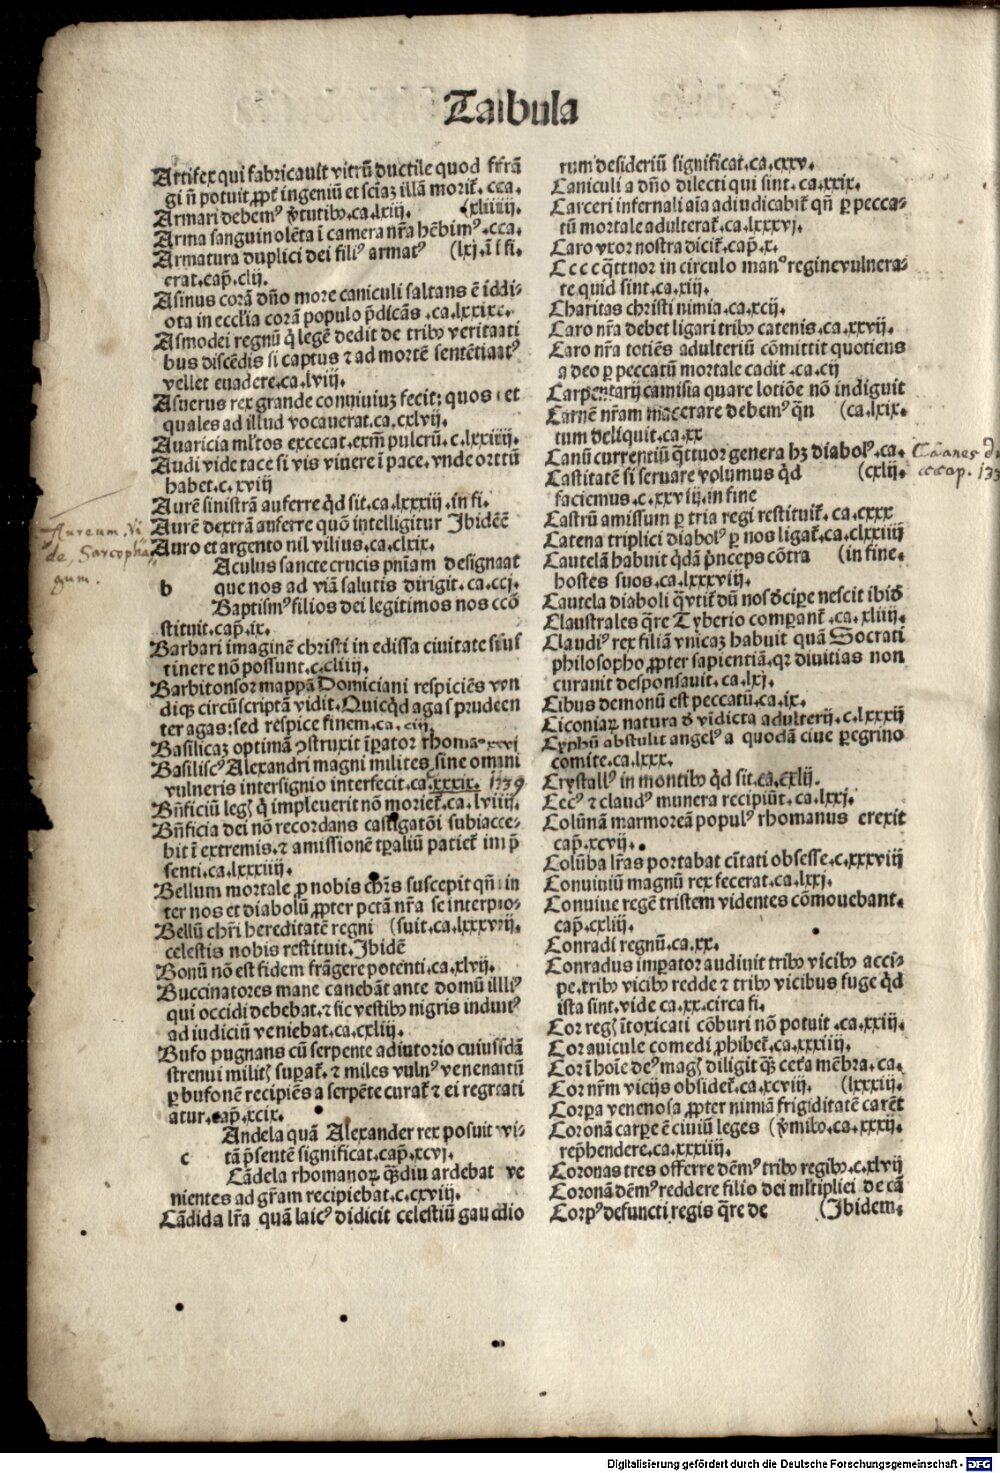 Taibula
Artifex qui fabricauit vitrū ductile quod frrā
gi n̄ potuit ꝓpt̄ ingeniū et sciaꝫ illā morit᷑. cca.
Armari debemꝰ v̄tutibꝫ.ca.lxiij. (xliiiij.
Arma sanguinolēta ī camera nr̄a hēbimꝰ.cca.
Armatura duplici dei filiꝰ armatꝰ (lxj.ī fi.
erat.cap̄.clij.
Asinus corā dn̄o more caniculi saltans ē iddi⸗
ota in ecclīa corā populo p̄dicās .ca.lxxixc.
Asmodei regnū q̄ legē dedit de tribꝫ veritaati
bus discēdis si captus ⁊ ad mortē sentētiaatꝰ
vellet euadere.ca.lviij.
Asuerus rex grande conuiuiuꝫ fecit; quos et
quales ad illud vocauerat.ca.cxlvij.
Auaricia ml̄tos excecat.exm̄ pulcrū.c.lxxiiij.
Audi vide tace si vis viuere ī pace.vnde orttū
habet.c.xviij
Aurē sinistrā auferre qd̄ sit.ca.lxxxiij.in fi.
Aurē dextrā auferre quō intelligitur Ibidēē
Auro et argento nil vilius.ca.clxix.
Aculus sancte crucis pniam designaat
b que nos ad viā salutis dirigit.ca.ccj.
Baptismꝰ filios dei legitimos nos ccō
stituit.cap̄.ix.
Barbari imaginē christi in edissa ciuitate sius
tinere nō possunt.c.cliiij.
Barbitonsor mappā Domiciani respiciēs ven
diqꝫ circūscriptā vidit.Quicqd̄ agas prudeen
ter agas:sed respice finem.ca.ciij.
Basilicaꝫ optimā ꝯstruxit īꝑator rhoma
Basiliscꝰ Alexandri magni milites sine omini
vulneris intersignio interfecit.ca.xxxix. 139
Bn̄ficiū leḡ q̄ impleuerit nō moriet᷑.ca.lviiij.
Bn̄ficia dei nō recordans castigatōi subiacce⸗
bit ī extremis.⁊ amissionē tꝑaliū patiet᷑ im p̄
senti.ca.lxxxiiij.
Bellum mortale ꝓ nobis chr̄s suscepit qn̄ in
ter nos et diabolū ꝓpter pctā nr̄a se interpro⸗
Bellū chr̄i hereditatē regni (suit.ca.lxxxvij.
celestis nobis restituit.Ibidē
Bonū nō est fidem frāgere potenti.ca.xlvij.
Buccinatores mane canebāt ante domū illliꝰ
qui occidi debebat.⁊ sic vestibꝫ nigris indutꝰ
ad iudiciū veniebat.ca.cxliij.
Bufo pugnans cū serpente adiutorio cuiussdā
strenui milit̄ suꝑat᷑. ⁊ miles vulnꝰ venenaitū
ꝑ bufonē recipiēs a serpēte curat᷑ ⁊ ei regraati
atur.cap̄.xcix.
Andela quā Alexander rex posuit vi⸗
c tā p̄sentē significat.cap̄.xcvj.
Cādela rhomanoꝝ qᷓdiu ardebat ve
nientes ad gr̄am recipiebat.c.cxviij.
Cādida lr̄a quā laicꝰ didicit celestiū gaudio
rum desideriū significat.ca.cxxv.
Caniculi a dn̄o dilecti qui sint.ca.xxix.
Carceri infernali aīa adiudicabit᷑ qn̄ ꝑ pecca⸗
tū mortale adulterat᷑.ca.lxxxvj.
Caro vxor nostra dicit᷑.cap̄.x.
Cccc qᷓttuor in circulo manꝰ regine vulnera⸗
te quid sint.ca.xiij.
Charitas christi nimia.ca.xcij.
Caro nr̄a debet ligari tribꝫ catenis.ca.xxvij.
Caro nr̄a totiēs adulteriū cōmittit quotiens
a deo ꝑ peccatū mortale cadit.ca.cij
Carpentarij camisia quare lotiōe nō indiguit
Carnē nr̄am macerare debemꝰ qn̄ (ca.lxix.
tum deliquit.ca.xx
Canū currentiū qᷓttuor genera hꝫ diabolꝰ.ca.
Castitatē si seruare volumus qd̄ (cxlij.
faciemus.c.xxvij.in fine
Castrū amissum ꝑ tria regi restituit᷑.ca.cxxx
Catena triplici diabolꝰ ꝑ nos ligat᷑.ca.clxxiiij
Cautelā habuit qd̄ā p̄nceps cōtra (in fine.
hostes suos.ca.lxxxviij.
Cautela diaboli qᷓ vtit᷑ dū nos dcipe nescit ibid̄
Claustrales qᷓre Tyberio comꝑant᷑.ca.xliiij.
Claudiꝰ rex filiā vnicaꝫ habuit quā Socrati
philosopho ꝓpter sapientiā.qꝛ diuitias non
curauit desponsauit.ca.lxj.
Cibus demonū est peccatū.ca.ix.
Ciconiaꝝ natura d̄ vīdicta adulterij.c.lxxxij
Cyphū abstulit angelꝰ a quodā ciue peregrino
comite.ca.lxxx.
Crystallꝰ in montibꝫ qd̄ sit.ca.cxlij.
Cecꝰ ⁊ claudꝰ munera recipiūt.ca.lxxj.
Colūnā marmoreā populꝰ rhomanus erexit
cap̄.xcvij.
Colūba lr̄as portabat cītati obsesse.c.xxxviij
Conuiuiū magnū rex fecerat.ca.lxxj.
Conuiue regē tristem videntes cōmouebant.
cap̄.cxliij.
Conradi regnū.ca.xx.
Conradus imꝑator audiuit tribꝫ vicibꝫ acci⸗
pe.tribꝫ vicibꝫ redde ⁊ tribꝫ vicibus fuge qd̄
ista sint.vide ca.xx.circa fi.
Cor reḡ ītoxicati cōburi nō potuit.ca.xxiij.
Cor auicule comedi ꝓhibet᷑.ca.xxxiij.
Cor ī hoīe deꝰ maḡ diligit qᷓꝫ cet̄a mēbra.ca.
Cor nr̄m vicijs obsidet᷑.ca.xcviij. (lxxxiij.
Corpa venenosa ꝓpter nimiā frigiditatē carēt
Coronā carpe ē ciuiū leges (v̄mibꝫ.ca.xxxij.
rep̄hendere.ca.xxxiiij.
Coronas tres offerre dēmꝰ tribꝫ regibꝫ.c.xlvij
Coronā dēmꝰ reddere filio dei ml̄tiplici de cā
Corpꝰ defuncti regis qᷓre de (Ibidem.
Aureum. Vi
de, Sarcopha
gum.
Canes
cap. 133
Digitalisierung gefördert durch die Deutsche Forschungsgemeinschaft - DFG